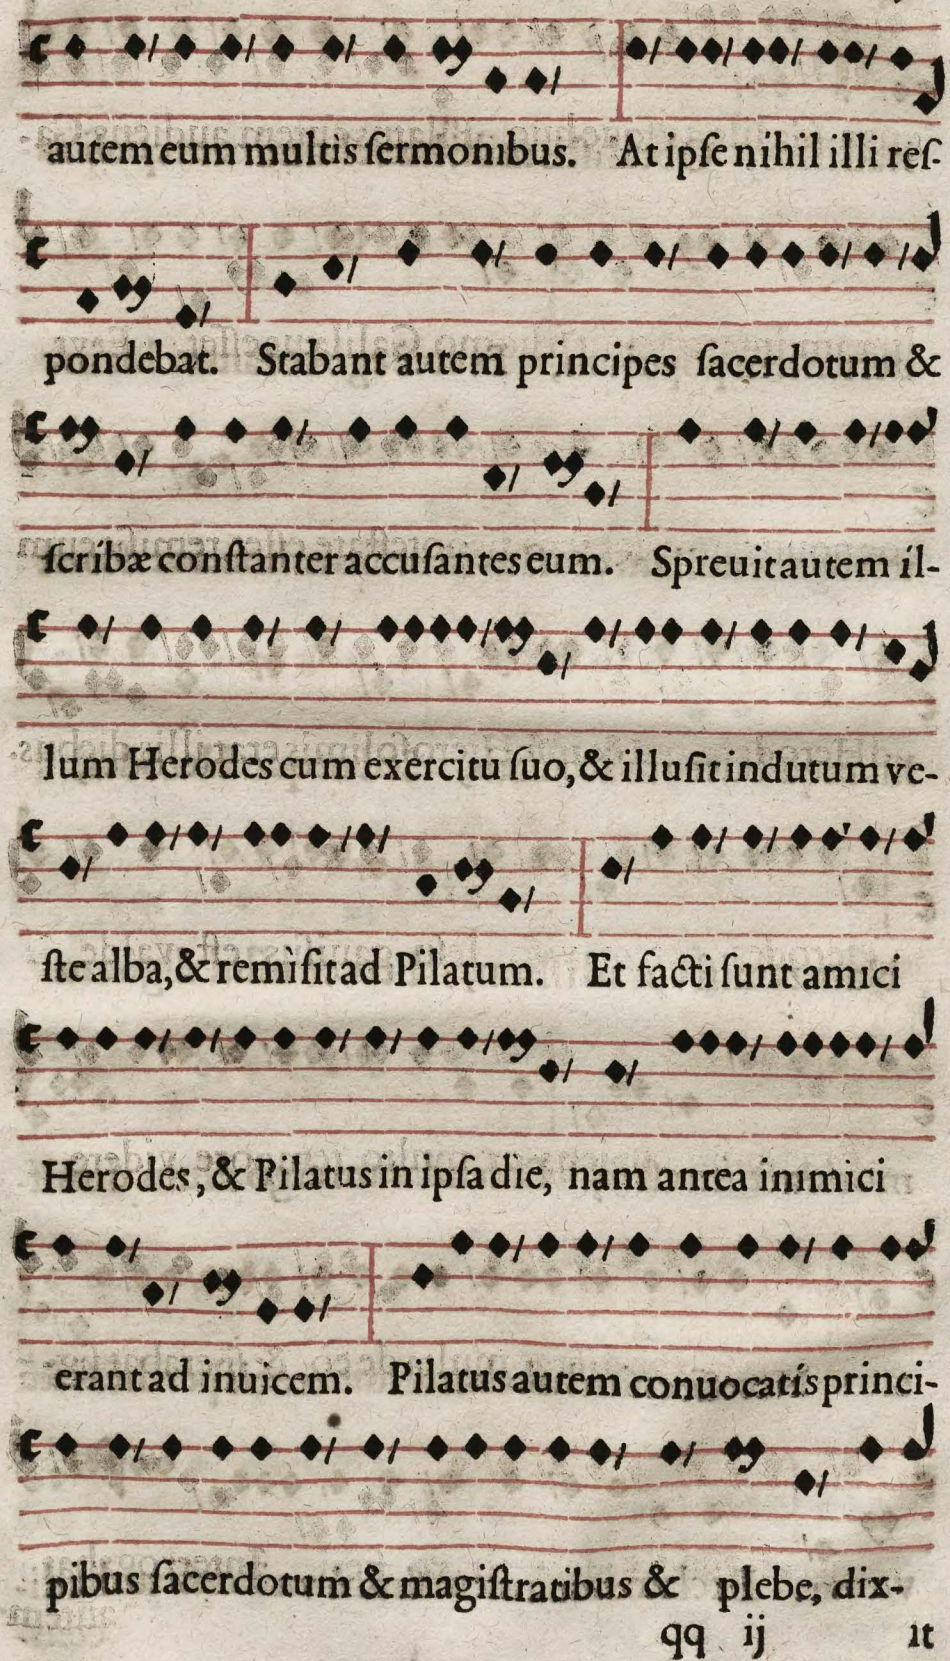 autem eum multis ſermonibus. At ipſe nihil illi reſ-
pondebat. Stabant autem principes ſacerdotum &
ſcribæ conſtanter accuſantes eum. Spreuit autem il-
lum Herodes cum exercitu ſuo, & illuſit indutum ve-
ſte alba, & remìſit ad Pilatum. Et facti ſunt amici
Herodes, & Pilatus in ipſa die, nam antea inimici
erant ad inuicem. Pilatus autem conuocatis princi-
pibus ſacerdotum & magiſtratibus & plebe, dix-
qq ij it